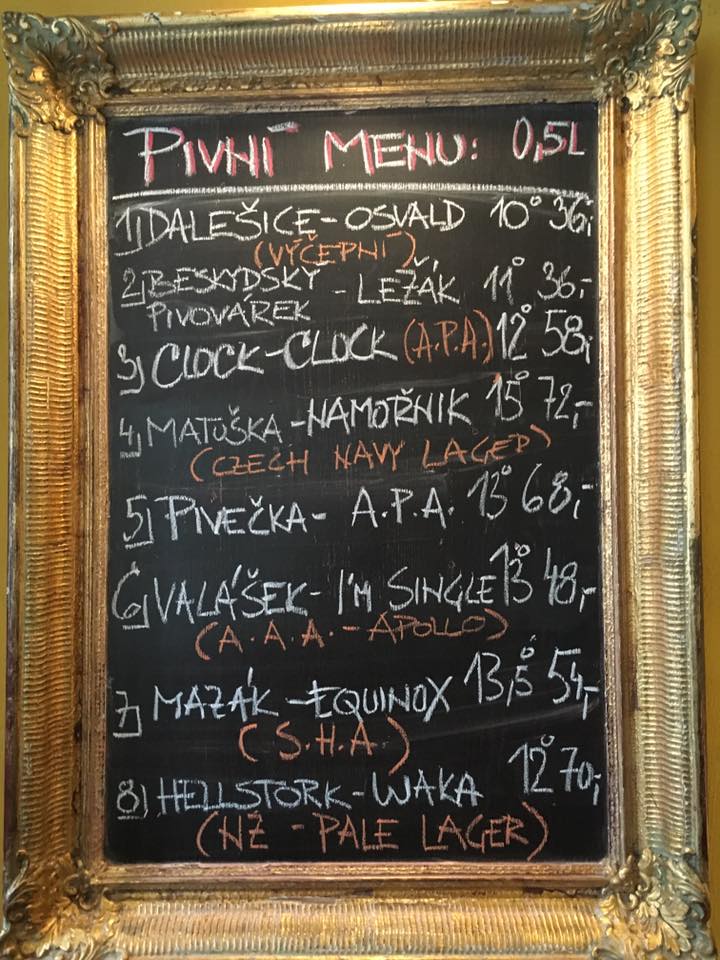 PIVNÍ MENU: 0,5L
1) DALEŠICE - OSVALD 10° 36,-
(VÝČEPNÍ)
2) BESKYDSKÝ - LEŽÁK 11° 36,-
PIVOVÁREK
3) CLOCK - CLOCK (A.P.A.) 12° 58,-
4) MATUŠKA - NÁMOŘNIK 15° 72,-
(CZECH NAVY LAGER)
5) PIVEČKA - A.P.A. 13° 68,-
6) VALÁŠEK - I'M SINGLE 13° 48,-
(A.A.A. - APOLLO)
7) MAZÁK - EQUINOX 13,5° 54,-
(S.H.A)
8) HELLSTORK - WAKA 12° 70,-
(NZ - PALE LAGER)